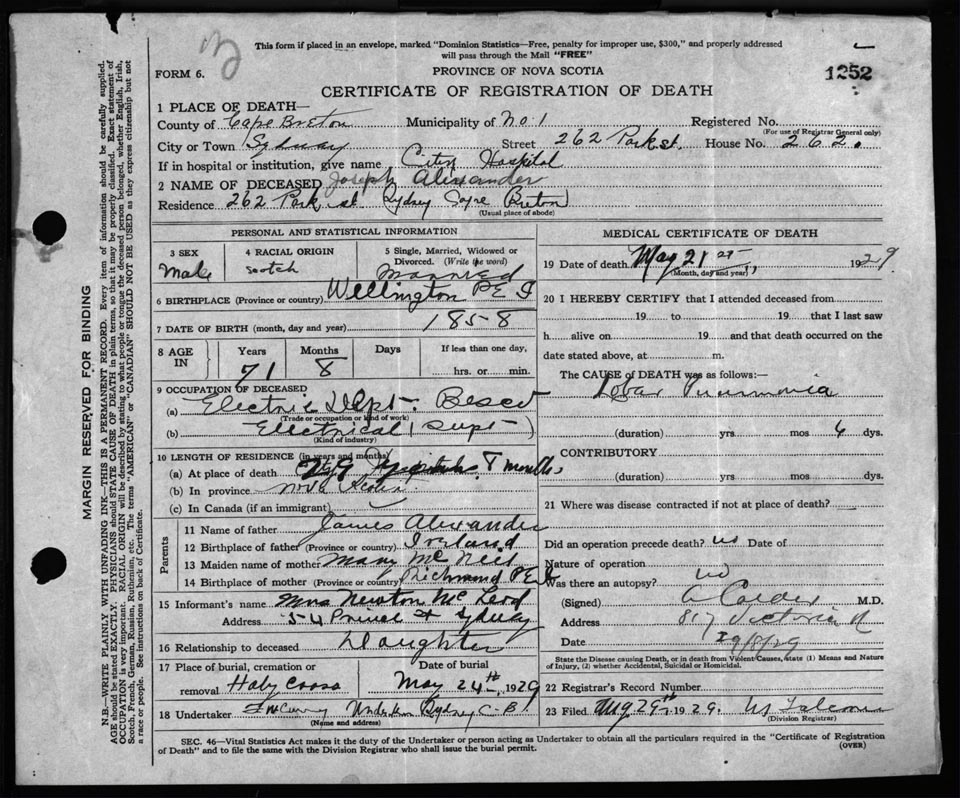 This form if placed in an envelope, marked "Dominion Statistics—Free, penalty for improper use, $300," and properly addressed
will pass through the Mail "FREE"
FORM 6.
PROVINCE OF NOVA SCOTIA
1252
CERTIFICATE OF REGISTRATION OF DEATH
1 PLACE OF DEATH—
County of Cape Breton Municipality of No 1 Registered No.
(For use of Registrar General only)
City or Town Sydney Street 262 Park st. House No. 262.
If in hospital or institution, give name City Hospital
2 NAME OF DECEASED Joseph Alexander
Residence 262 Park st Sydney Cape Breton
(Usual place of abode)
PERSONAL AND STATISTICAL INFORMATION
3 SEX
Male
4 RACIAL ORIGIN
scotch
5 Single, Married, Widowed or
Divorced. (Write the word)
Married
6 BIRTHPLACE (Province or country) Wellington P E I
7 DATE OF BIRTH (month, day and year) 1858
8 AGE
IN
Years
71
Months
8
Days
If less than one day,
hrs. or min.
9 OCCUPATION OF DECEASED
(a) Electric Dept. Besco
(Trade or occupation or kind of work)
(b) Electrical (Supt)
(Kind of industry)
10 LENGTH OF RESIDENCE (in years and months)
(a) At place of death 29 months
(b) In province Nova Scotia
(c) In Canada (if an immigrant)
Parents
11 Name of father James Alexander
12 Birthplace of father (Province or country) Ireland
13 Maiden name of mother Mary McNeil
14 Birthplace of mother (Province or country) Richmond P E I
15 Informant's name Mrs Newton McLeod
Address 54 Prince St Sydney
16 Relationship to deceased Daughter
17 Place of burial, cremation or
removal Holy Cross
Date of burial
May 24th, 1929
18 Undertaker Sydney C-B
(Name and address)
MEDICAL CERTIFICATE OF DEATH
19 Date of death May 21st, 1929.
(Month, day and year)
20 I HEREBY CERTIFY that I attended deceased from
19 to 19 that I last saw
h alive on 19 and that death occurred on the
date stated above, at m.
The CAUSE OF DEATH was as follows:—
Lobar Pneumonia
(duration) yrs mos 4 dys.
CONTRIBUTORY
(duration) yrs mos dys.
21 Where was disease contracted if not at place of death?
Did an operation precede death? no Date of
Nature of operation
Was there an autopsy? no
(Signed) A Calder M.D.
Address 817 Victoria R
Date 29/8/29
State the Disease causing Death, or in death from Violent Causes, state (1) Means and Nature
of Injury, (2) whether Accidental, Suicidal or Homicidal.
22 Registrar's Record Number
23 Filed Aug 29th 1929.
(Division Registrar)
SEC. 46—Vital Statistics Act makes it the duty of the Undertaker or person acting as Undertaker to obtain all the particulars required in the "Certificate of Registration
of Death" and to file the same with the Division Registrar who shall issue the burial permit.
(OVER)
MARGIN RESERVED FOR BINDING
N.B.—WRITE PLAINLY WITH UNFADING INK—THIS IS A PERMANENT RECORD. Every item of information should be carefully supplied.
AGE should be stated EXACTLY. PHYSICIANS should STATE CAUSE OF DEATH in plain terms, so that it may be properly classified. Exact statement of
OCCUPATION is very important. RACIAL ORIGIN will be described by stating to what people or tongue the deceased person belonged, whether English, Irish,
Scotch, French, German, Russian, Ruthenian, etc. The terms "AMERICAN" or "CANADIAN" SHOULD NOT BE USED as they express citizenship but not
a race or people. See instructions on back of Certificate.